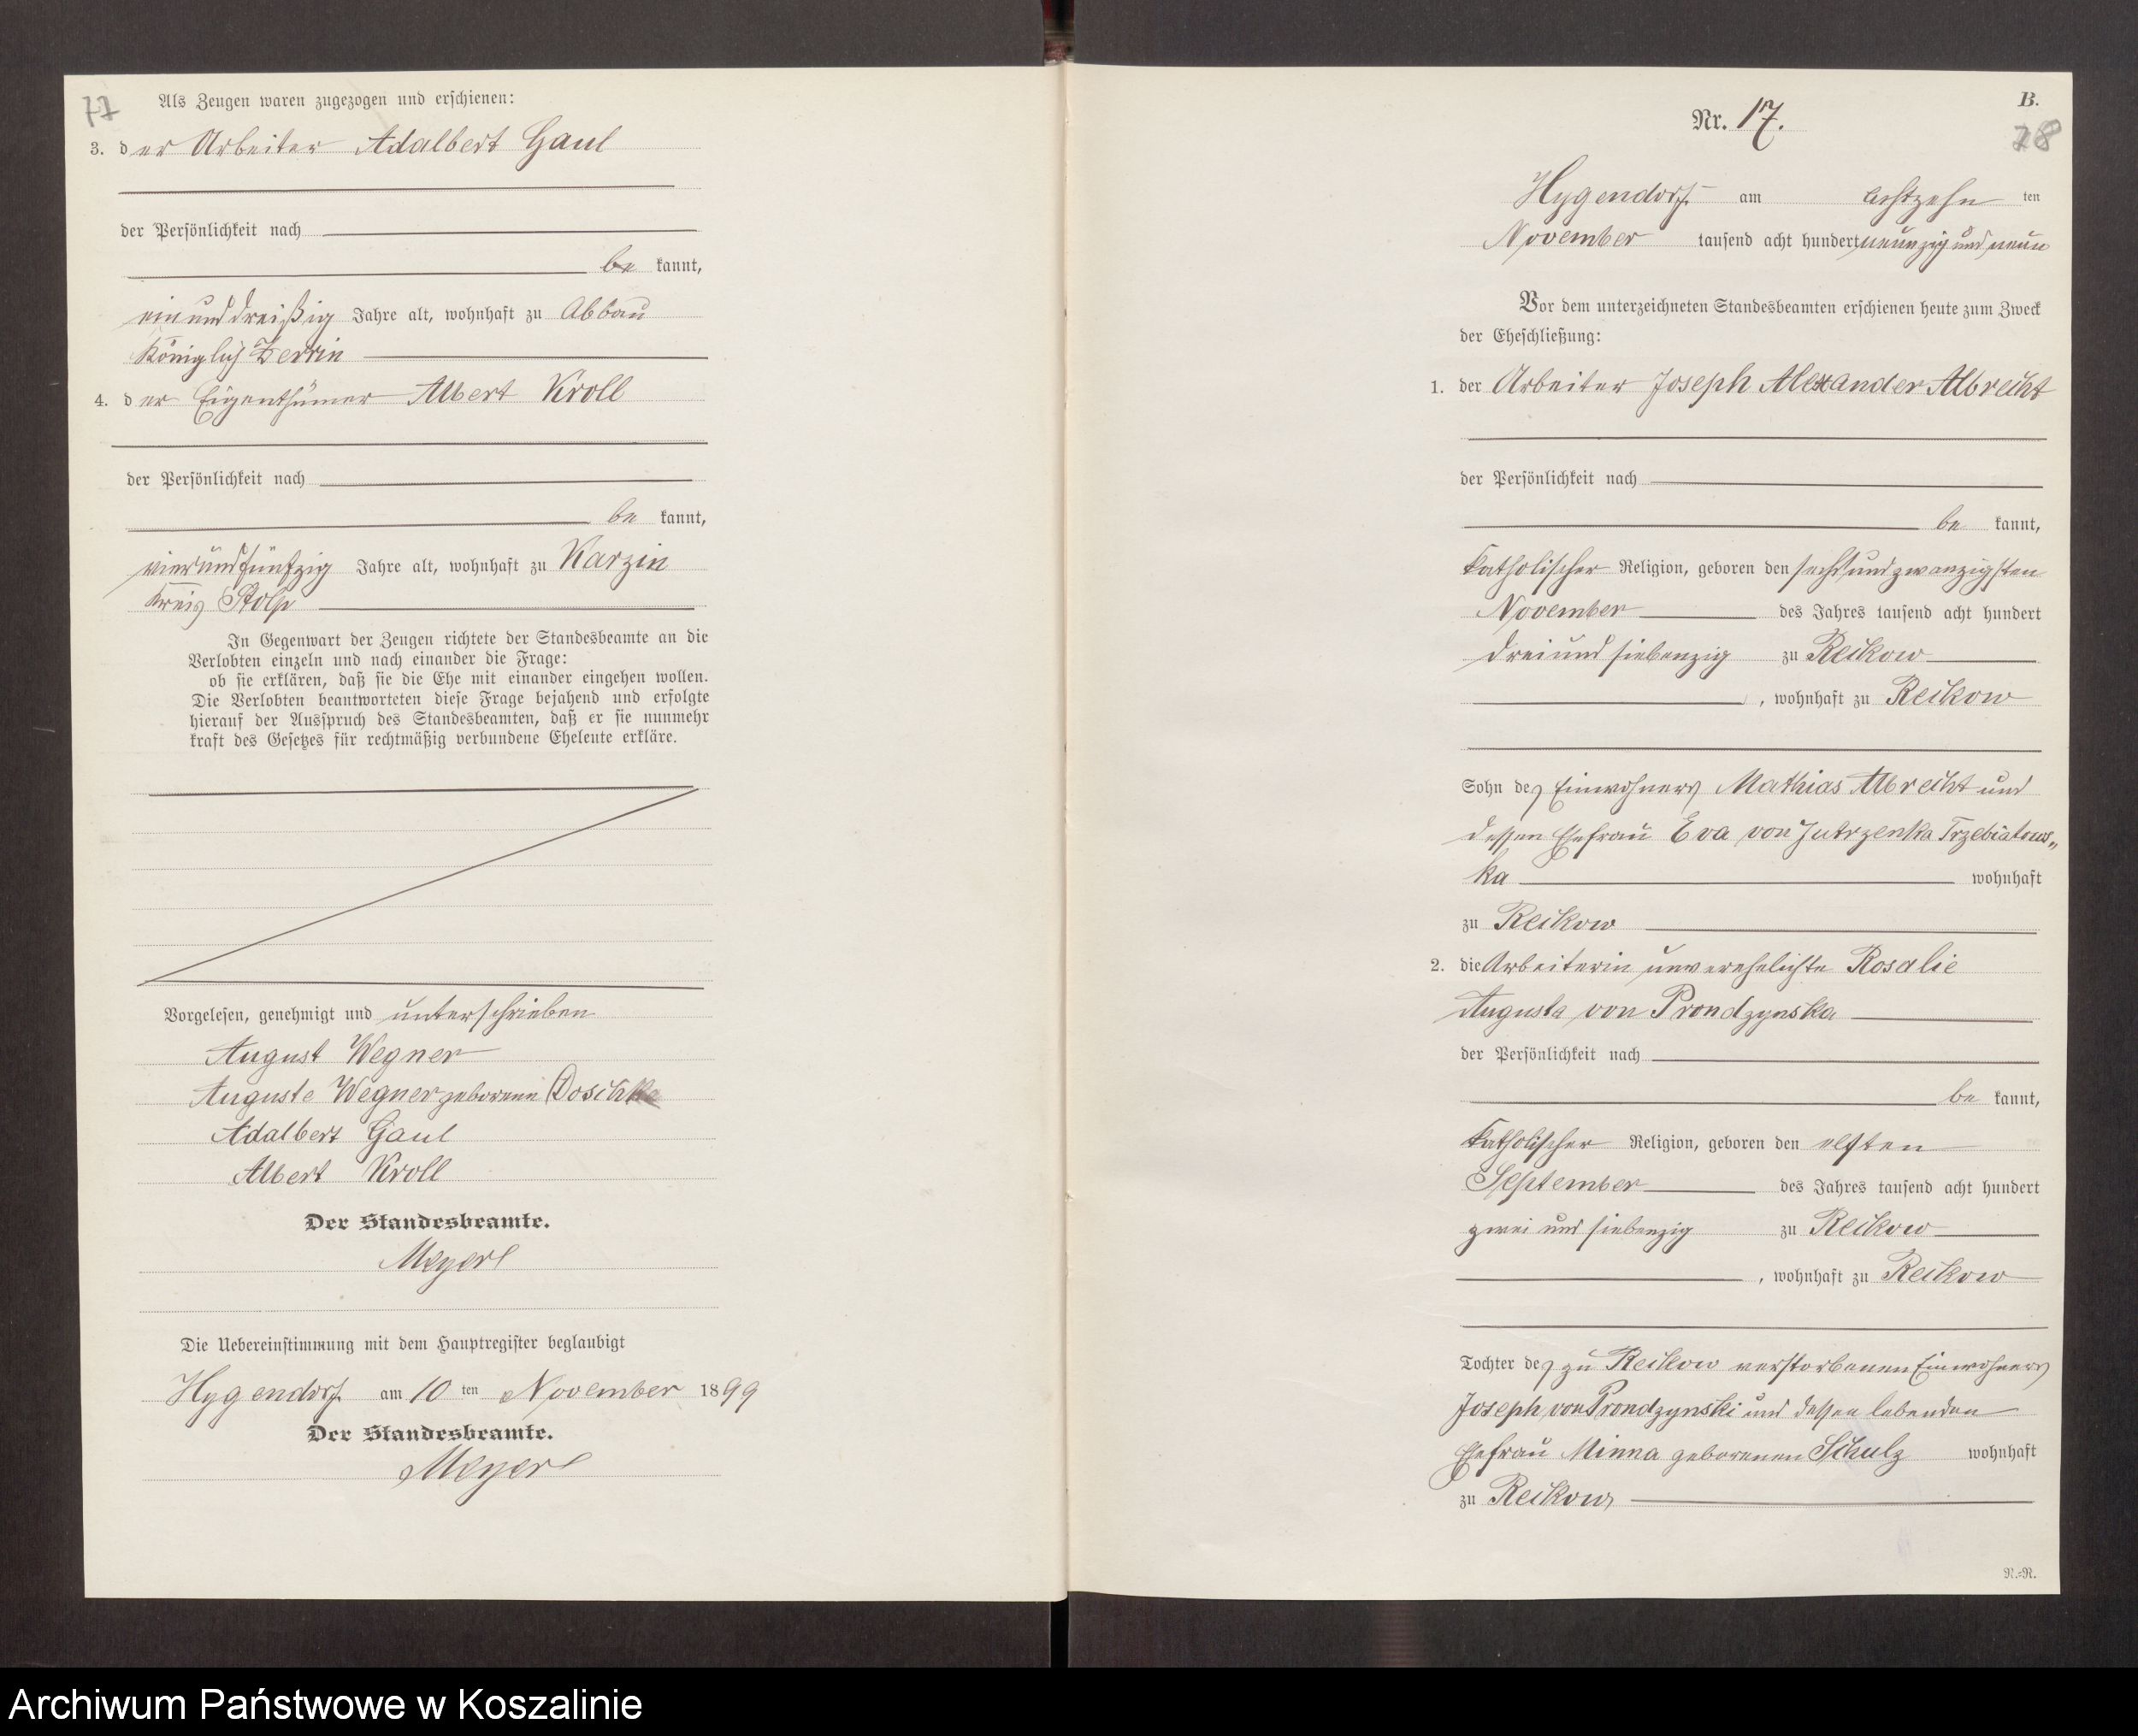 77
Als Zeugen waren zugezogen und erschienen:
3. der Arbeiter Adalbert Gaul
der Persönlichkeit nach
be kannt,
einunddreißig Jahre alt, wohnhaft zu Abbau
Königlich Zerrin
4. der Eigenthümer Albert Kroll
der Persönlichkeit nach
be kannt,
vierundfünfzig Jahre alt, wohnhaft zu Karzin
Kreis Stolp
In Gegenwart der Zeugen richtete der Standesbeamte an die
Verlobten einzeln und nach einander die Frage:
ob sie erklären, daß sie die Ehe mit einander eingehen wollen.
Die Verlobten beantworteten diese Frage bejahend und erfolgte
hierauf der Ausspruch des Standesbeamten, daß er sie nunmehr
kraft des Gesetzes für rechtmäßig verbundene Eheleute erkläre.
Vorgelesen, genehmigt und unterschrieben
August Wegner
Auguste Wegner geborene Doschka
Adalbert Gaul
Albert Kroll
Der Standesbeamte.
Meyer
Die Uebereinstimmung mit dem Hauptregister beglaubigt
Hygendorf am 10 ten November 1899
Der Standesbeamte.
Meyer
B.
Nr. 17.
78
Hygendorf am achtzehn ten
November tausend acht hundert neunzig und neun
Vor dem unterzeichneten Standesbeamten erschienen heute zum Zweck
der Eheschließung:
1. der Arbeiter Joseph Alexander Albrecht
der Persönlichkeit nach
be kannt,
katholischer Religion, geboren den sechsundzwanzigsten
November des Jahres tausend acht hundert
dreiund siebenzig zu Reckow
, wohnhaft zu Reckow
Sohn des Einwohners Mathias Albrecht und
dessen Ehefrau Eva von Jutrzenka Trzebiatows„
ka wohnhaft
zu Reckow
2. die Arbeiterin unverehelichte Rosalie
Augusta von Prondzynska
der Persönlichkeit nach
be kannt,
katholischer Religion, geboren den elften
September des Jahres tausend acht hundert
zwei und siebenzig zu Reckow
, wohnhaft zu Reckow
Tochter des zu Reckow verstorbenen Einwohners
Joseph von Prondzynski und dessen lebenden
Ehefrau Minna geborenen Schulz wohnhaft
zu Reckow
N.=N.
Archiwum Państwowe w Koszalinie